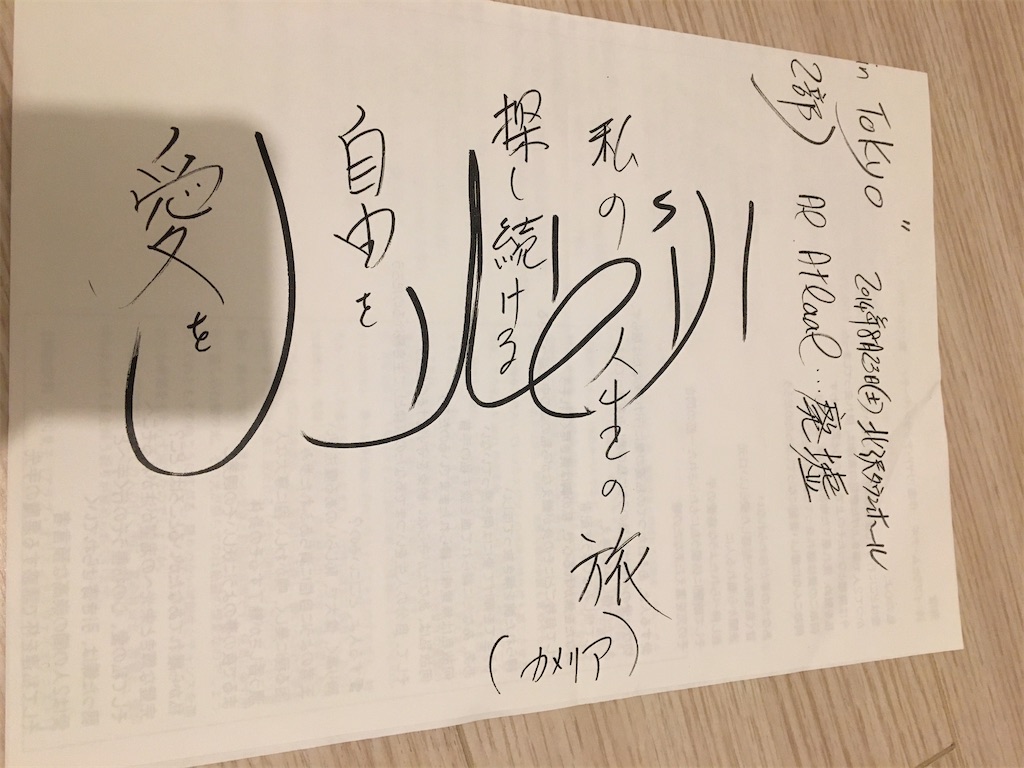 in Tokyo"
2014年8月23日(土) 北沢タウンホール
2部) Al Atlaal…廃墟
الأطلال
愛を
自由を
探し続ける
私の人生の旅
(カメリア)